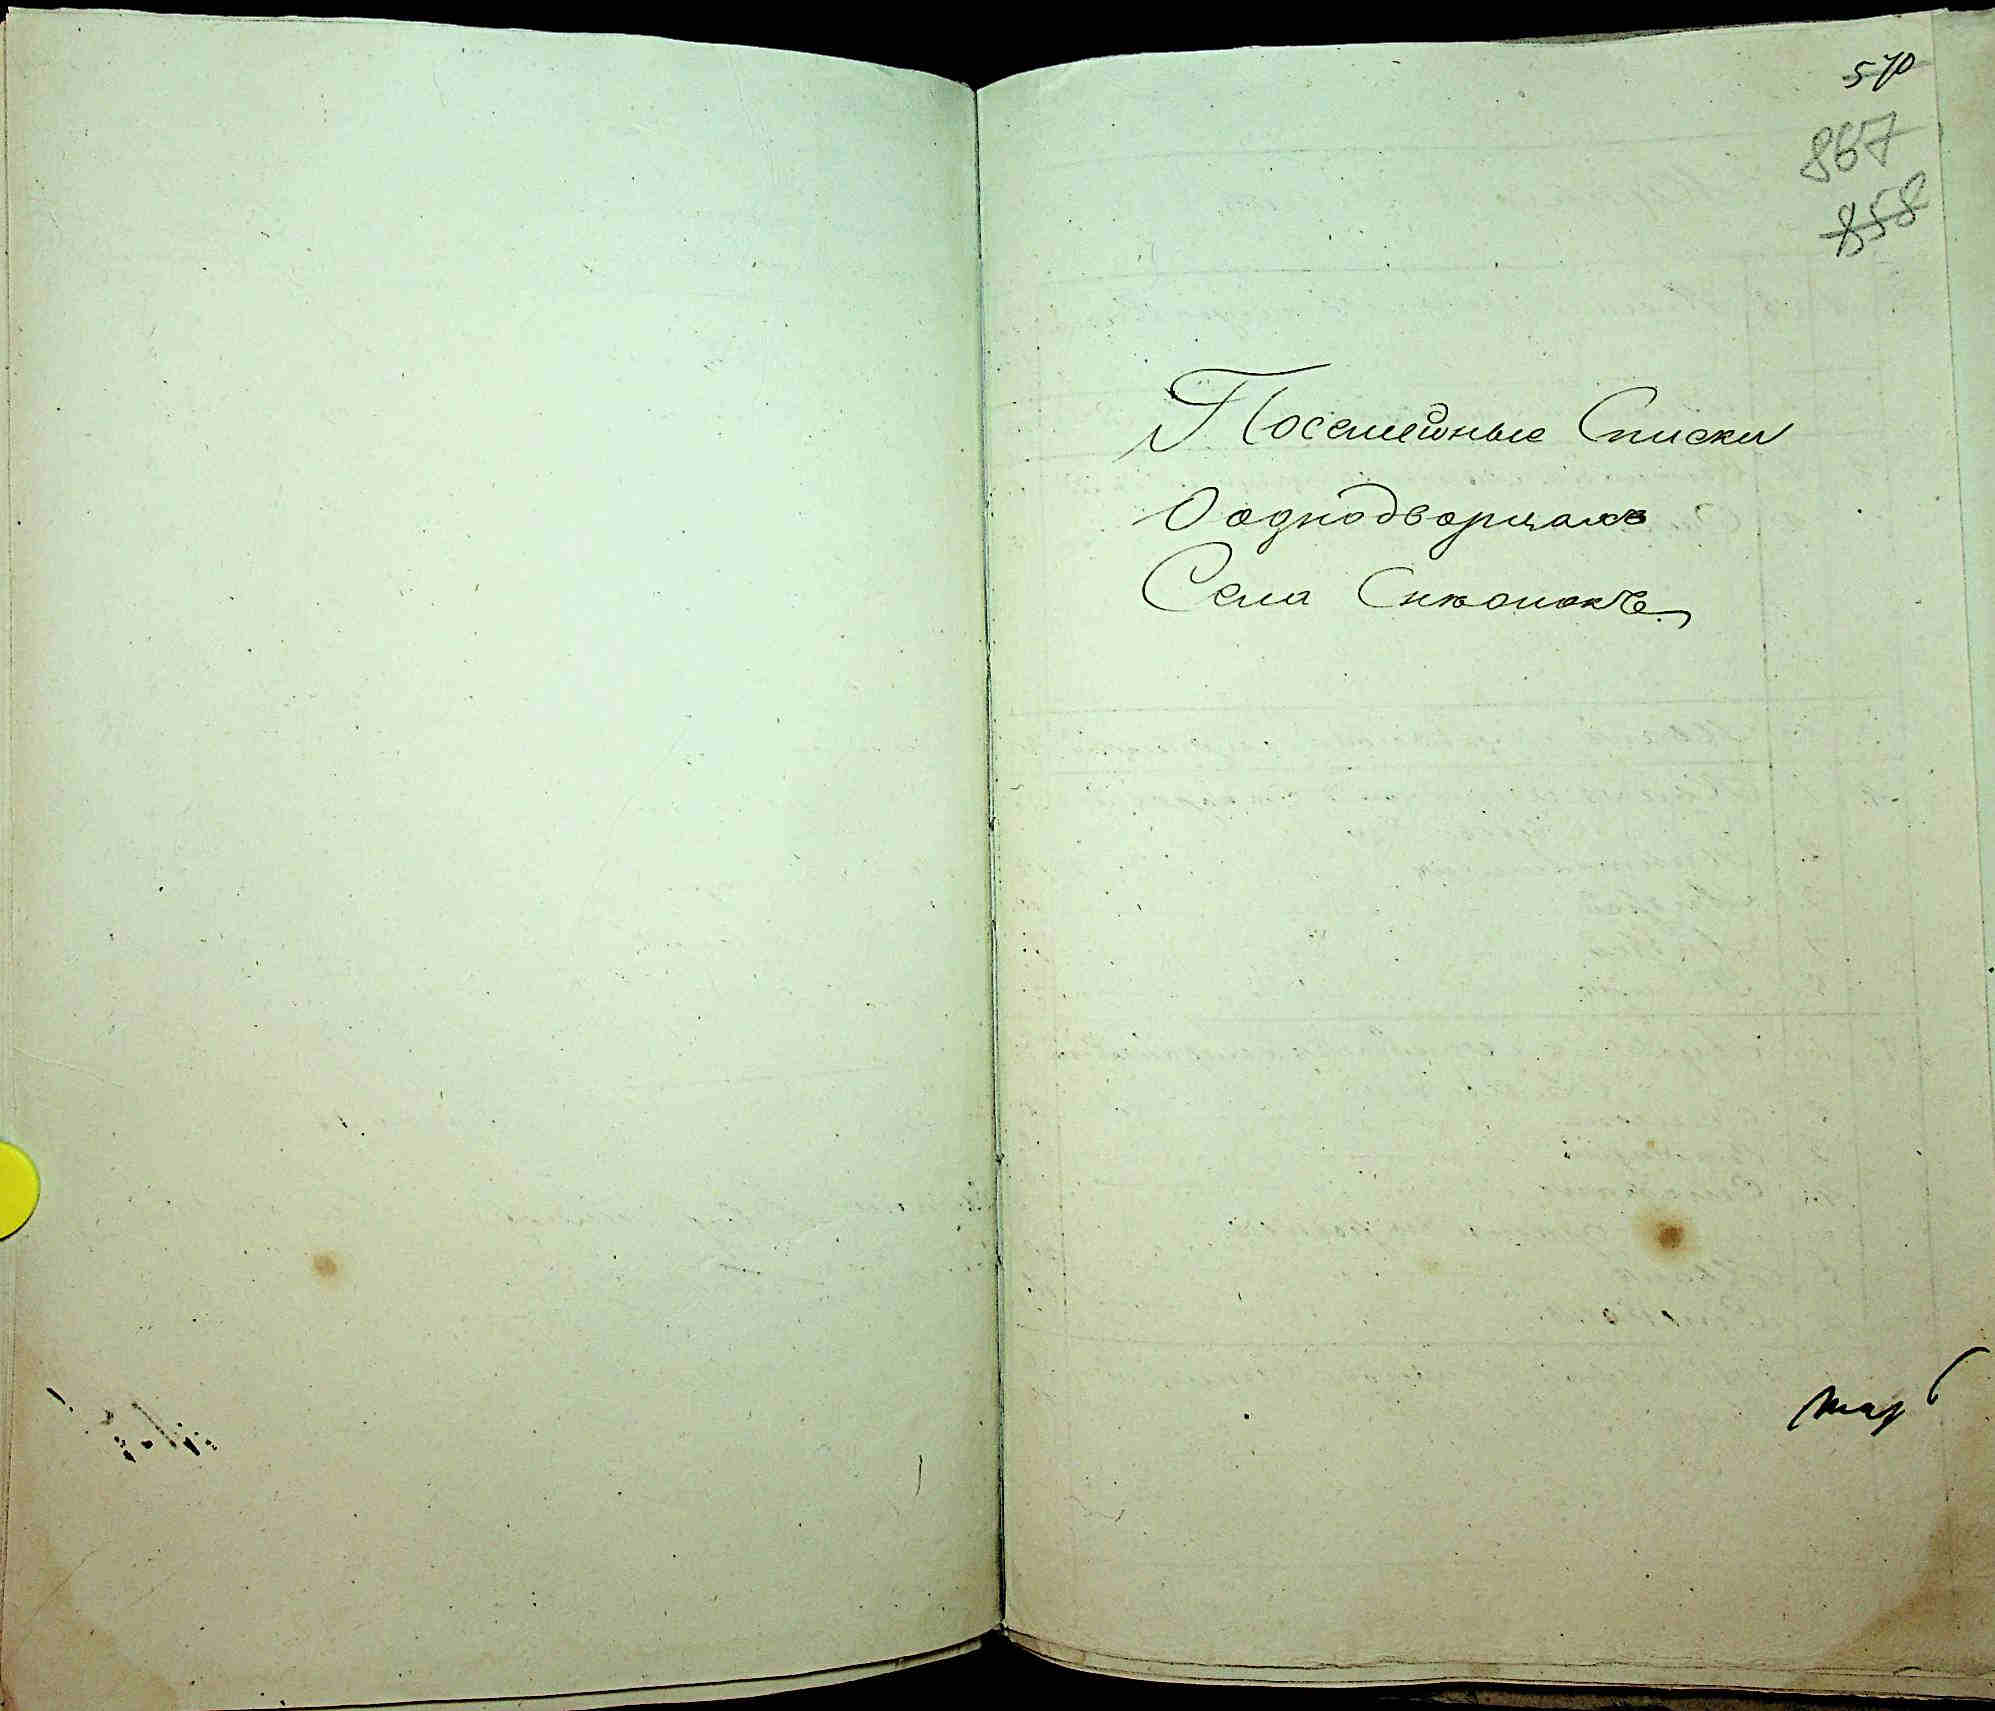 570
867
858
Посемейные Списки
О однодворцахъ
Села